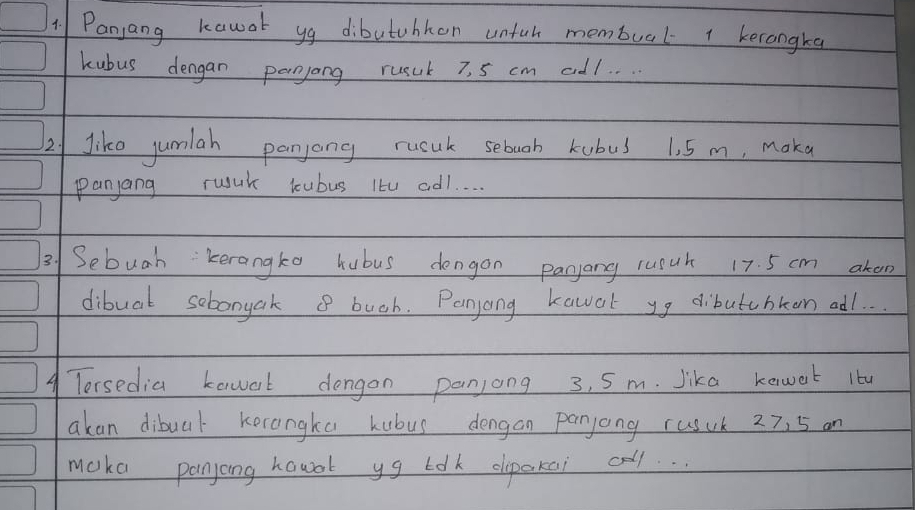 1. Panjang kawat yg dibutuhkan untuk membuat 1 kerangka
kubus dengan panjang rusuk 7,5 cm adl....
2. Jika jumlah panjang rusuk sebuah kubus 1,5 m, Maka
panjang rusuk kubus itu adl....
3. Sebuah kerangka kubus dengan panjang rusuk 17.5 cm akan
dibuat sebanyak 8 buah. Panjang kawat yg dibutuhkan adl...
4 Tersedia kawat dengan panjang 3,5 m. Jika kawat itu
akan dibuat kerangka kubus dengan panjang rusuk 27,5 cm
maka panjang kawat yg tdk dipakai adl...